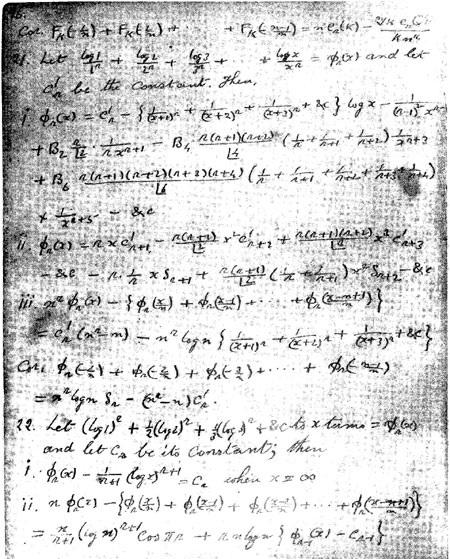 Cor. F_k(-1/n) + F_k(-2/n) + + F_k(-(n-1)/n) = n c_n(k) -
21. Let log1/1^r + log2/2^r + log3/3^r + + logx/x^r = φ_r(x) and let
C'_r be the constant. Then,
i. φ_r(x) = C'_r - {1/(x+1)^r + 1/(x+2)^r + 1/(x+3)^r + &c} log x - 1/(r-1)^2 x^{r-1}
+ B_2 r/⌊2 · 1/r x^{r+1} - B_4 r(r+1)(r+2)/⌊4 (1/r + 1/(r+1) + 1/(r+2)) 1/x^{r+3}
+ B_6 r(r+1)(r+2)(r+3)(r+4)/⌊6 (1/r + 1/(r+1) + 1/(r+2) + 1/(r+3) + 1/(r+4))
× 1/x^{r+5} - &c
ii. φ_r(x) = r x C'_{r+1} - r(r+1)/⌊2 x^2 C'_{r+2} + r(r+1)(r+2)/⌊3 x^3 C'_{r+3}
- &c - r · 1/r x S_{r+1} + r(r+1)/⌊2 (1/r + 1/(r+1)) x^2 S_{r+2} - &c
iii. n^r φ_r(x) - {φ_r(x/n) + φ_r((x-1)/n) + ···· + φ_r((x-n+1)/n)}
= C'_r (n^r - n) - n^r log n {1/(x+1)^r + 1/(x+2)^r + 1/(x+3)^r + &c}
Cor. φ_r(-1/n) + φ_r(-2/n) + φ_r(-3/n) + ···· + φ_r(-(n-1)/n)
= n^r log n S_r - (n^r - n) C'_r.
22. Let (log1)^r + 1/2(log2)^r + 1/3(log3)^r + &c to x terms = φ_r(x)
and let C_r be its constant; then
i. φ_r(x) - 1/(r+1) (log x)^{r+1} = C_r when x = ∞
ii. n φ_r(x) - {φ_r(x/n) + φ_r((x-1)/n) + φ_r((x-2)/n) + ···· + φ_r((x-n+1)/n)}
= n/(r+1) (log n)^{r+1} Cos πr + r n log n {φ_{r-1}(x) - C_{r-1}}